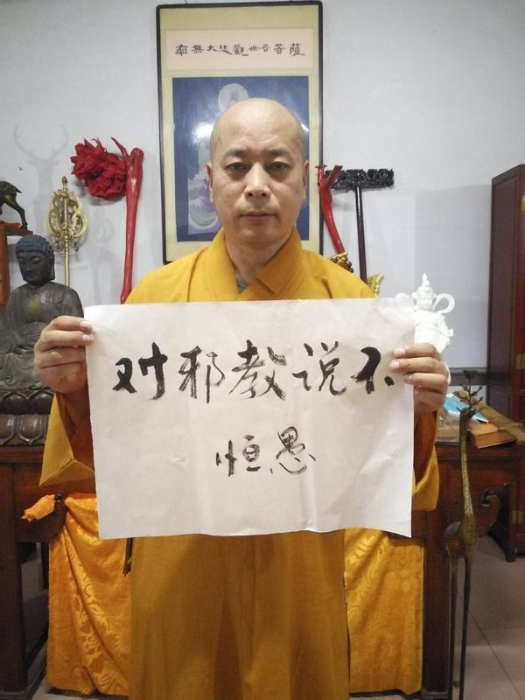 南無大悲觀世音菩薩
对邪教说不
恒愚